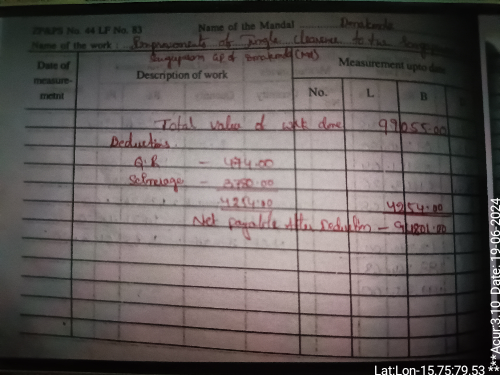 ZPRPS No. 44 LF No. 83 Name of the Mandal Donakonda
Name of the work : Improvements of Jungle clearence to the
GP of Donakonda (M)
Date of measure-metnt Description of work Measurement upto date
No. L B
Total value of work done 99055.00
Deductions
Q.R - 474.00
Seinerage - 3780.00
4254.00 4254.00
Net payable after deduction - 94801.00
Lat:Lon-15.75:79.53 ***Acur:3.10 Date: 19-06-2024